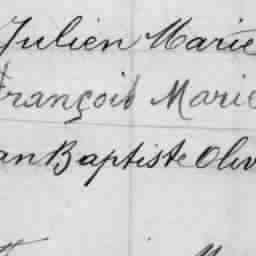 Julien Marie
François Marie
an Baptiste Oliv